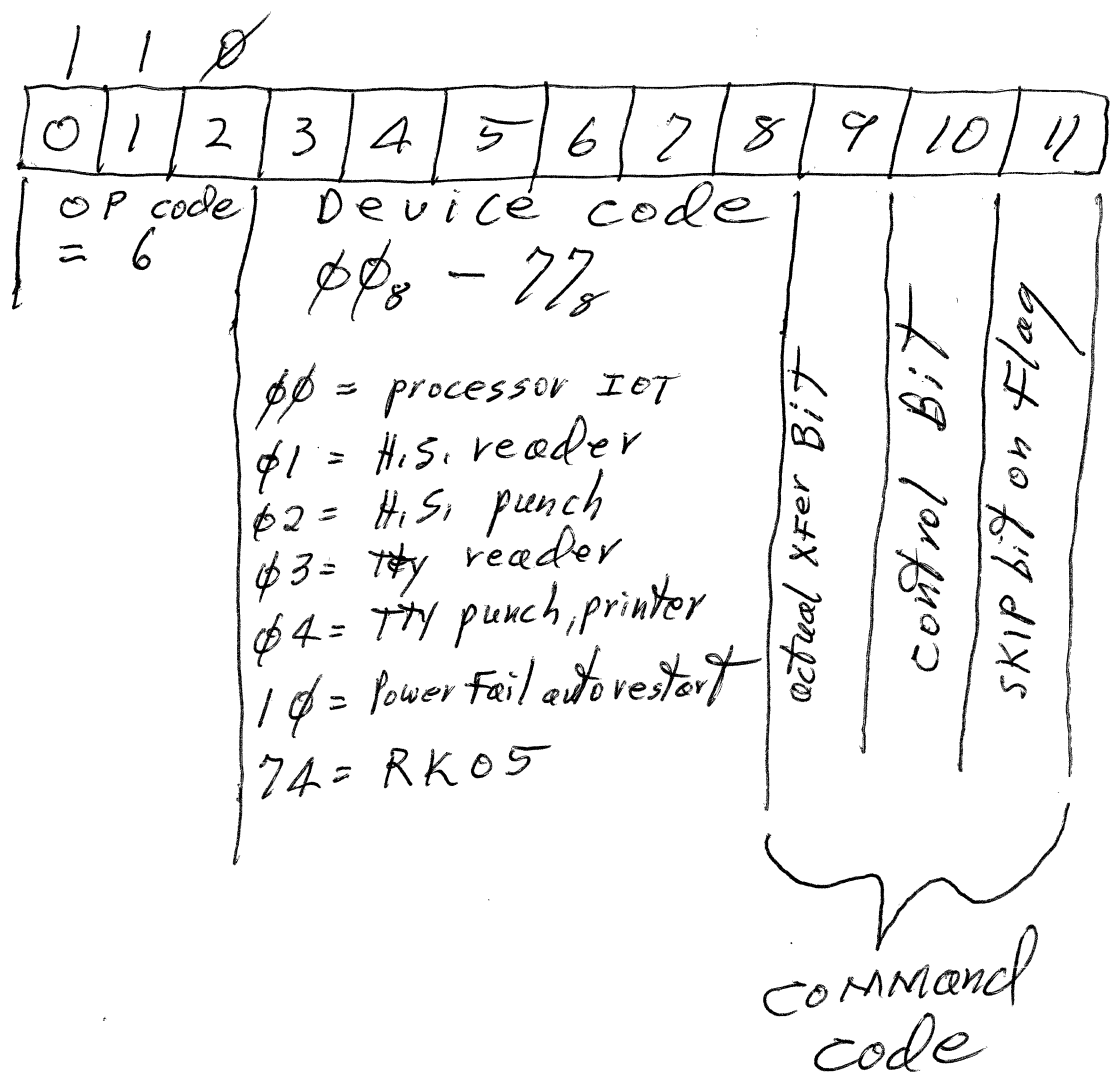 1 1 Ø
0 1 2 3 4 5 6 7 8 9 10 11
OP code
= 6
Device code
ØØ₈ - 77₈
ØØ = processor IOT
Ø1 = H.S. reader
Ø2 = H.S. punch
Ø3 = TTY reader
Ø4 = TTY punch, printer
1Ø = Power Fail auto restart
74 = RK05
actual XFer Bit
control Bit
SKIP bit on Flag
command
code